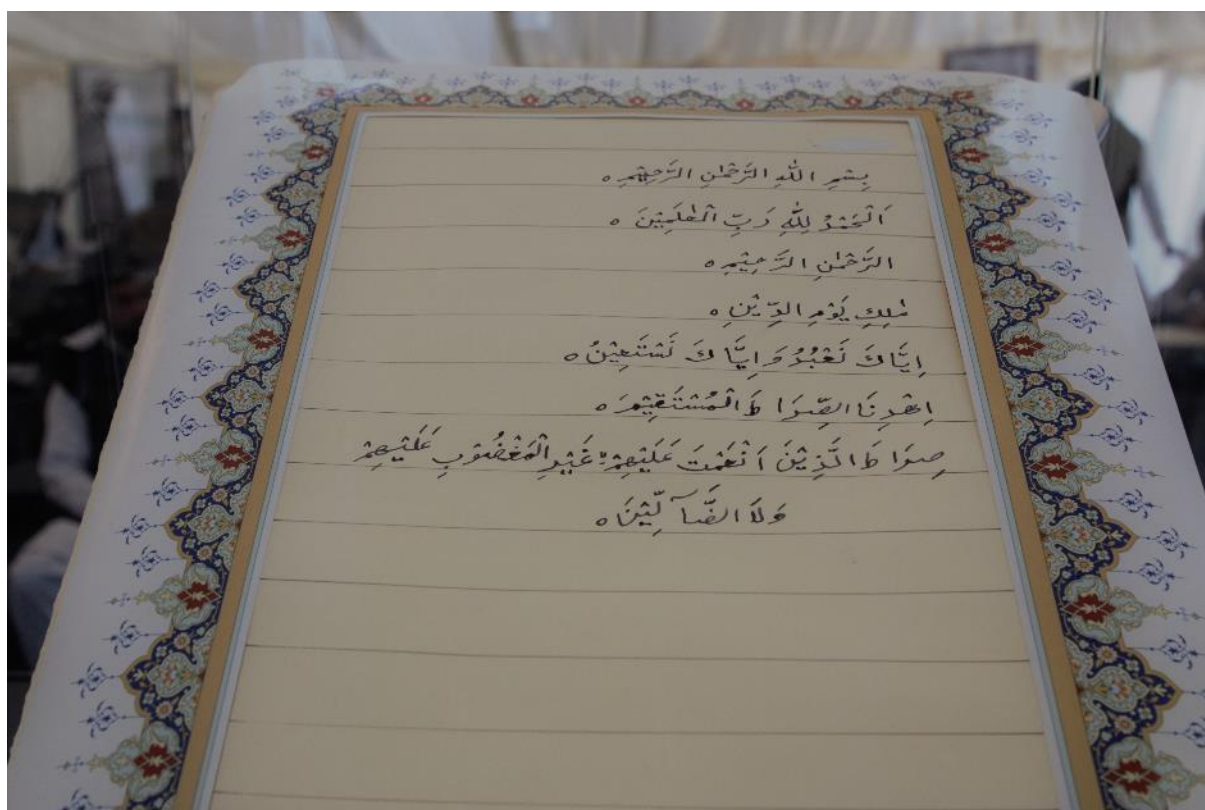 بِسْمِ اللّٰهِ الرَّحْمٰنِ الرَّحِيْمِ ه
اَلْحَمْدُ لِلّٰهِ رَبِّ الْعٰلَمِيْنَ ه
الرَّحْمٰنِ الرَّحِيْمِ ه
مٰلِكِ يَوْمِ الدِّيْنِ ه
اِيَّاكَ نَعْبُدُ وَ اِيَّاكَ نَسْتَعِيْنُ ه
اِهْدِنَا الصِّرَاطَ الْمُسْتَقِيْمَ ه
صِرَاطَ الَّذِيْنَ اَنْعَمْتَ عَلَيْهِمْ ە غَيْرِ الْمَغْضُوْبِ عَلَيْهِمْ
وَلَا الضَّآلِّيْنَ ه